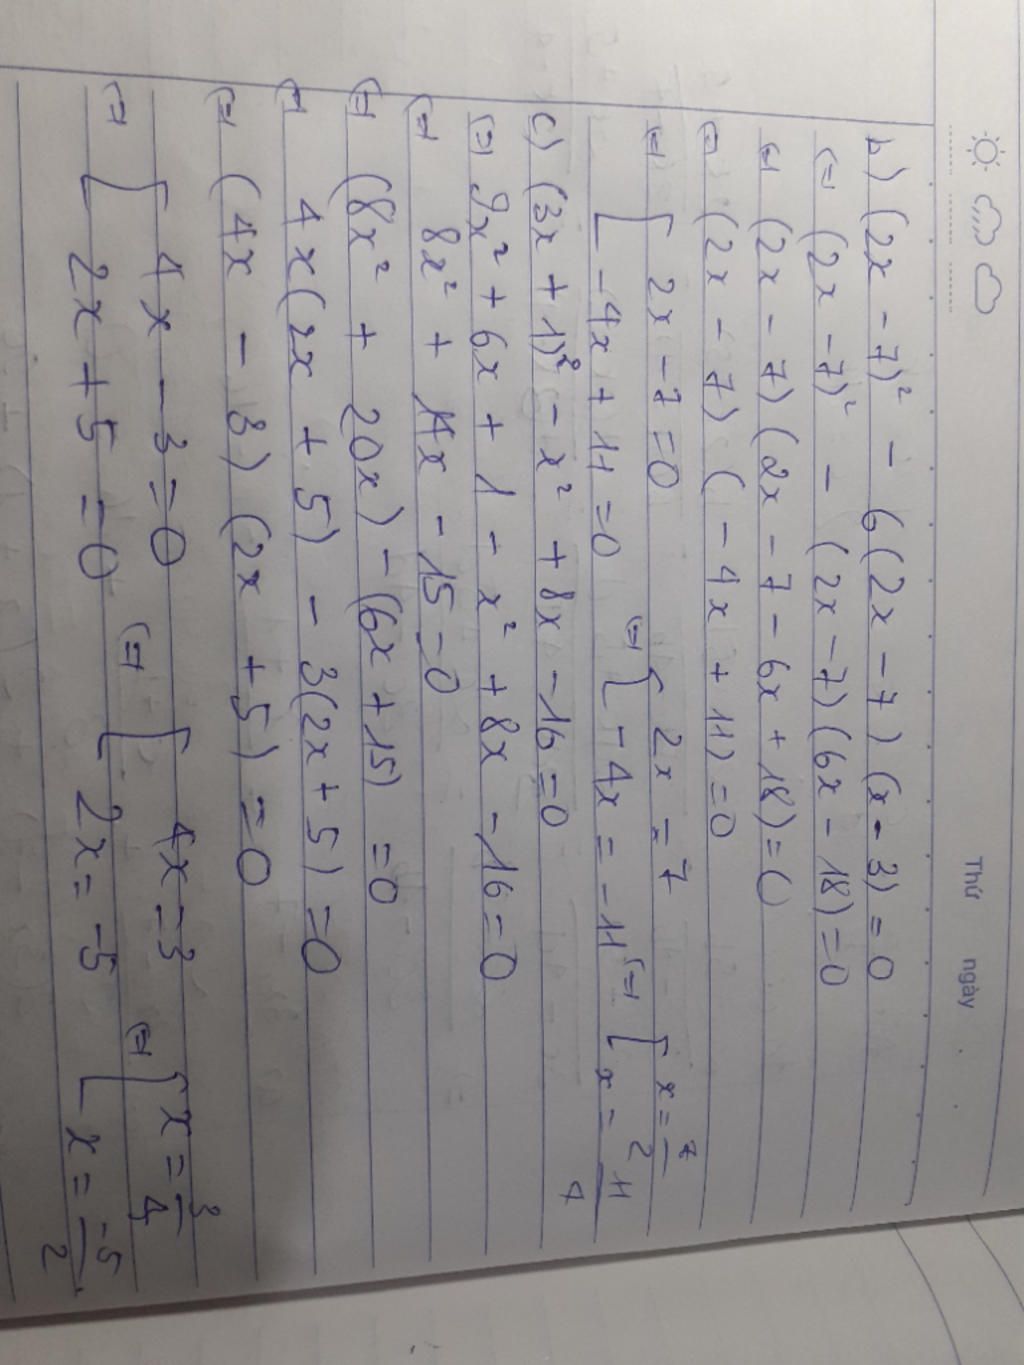 Thứ ngày
b) (2x - 7)² - 6(2x - 7)(x - 3) = 0
(=) (2x - 7)² - (2x - 7)(6x - 18) = 0
(=) (2x - 7)(2x - 7 - 6x + 18) = 0
(=) (2x - 7)(-4x + 11) = 0
(=) [ 2x - 7 = 0 (=) [ 2x = 7 (=) [ x = 7/2
-4x + 11 = 0 -4x = -11 x = 11/4
c) (3x + 1)² - x² + 8x - 16 = 0
(=) 9x² + 6x + 1 - x² + 8x - 16 = 0
(=) 8x² + 14x - 15 = 0
(=) (8x² + 20x) - (6x + 15) = 0
(=) 4x(2x + 5) - 3(2x + 5) = 0
(=) (4x - 3)(2x + 5) = 0
(=) [ 4x - 3 = 0 (=) [ 4x = 3 (=) [ x = 3/4
2x + 5 = 0 2x = -5 x = -5/2